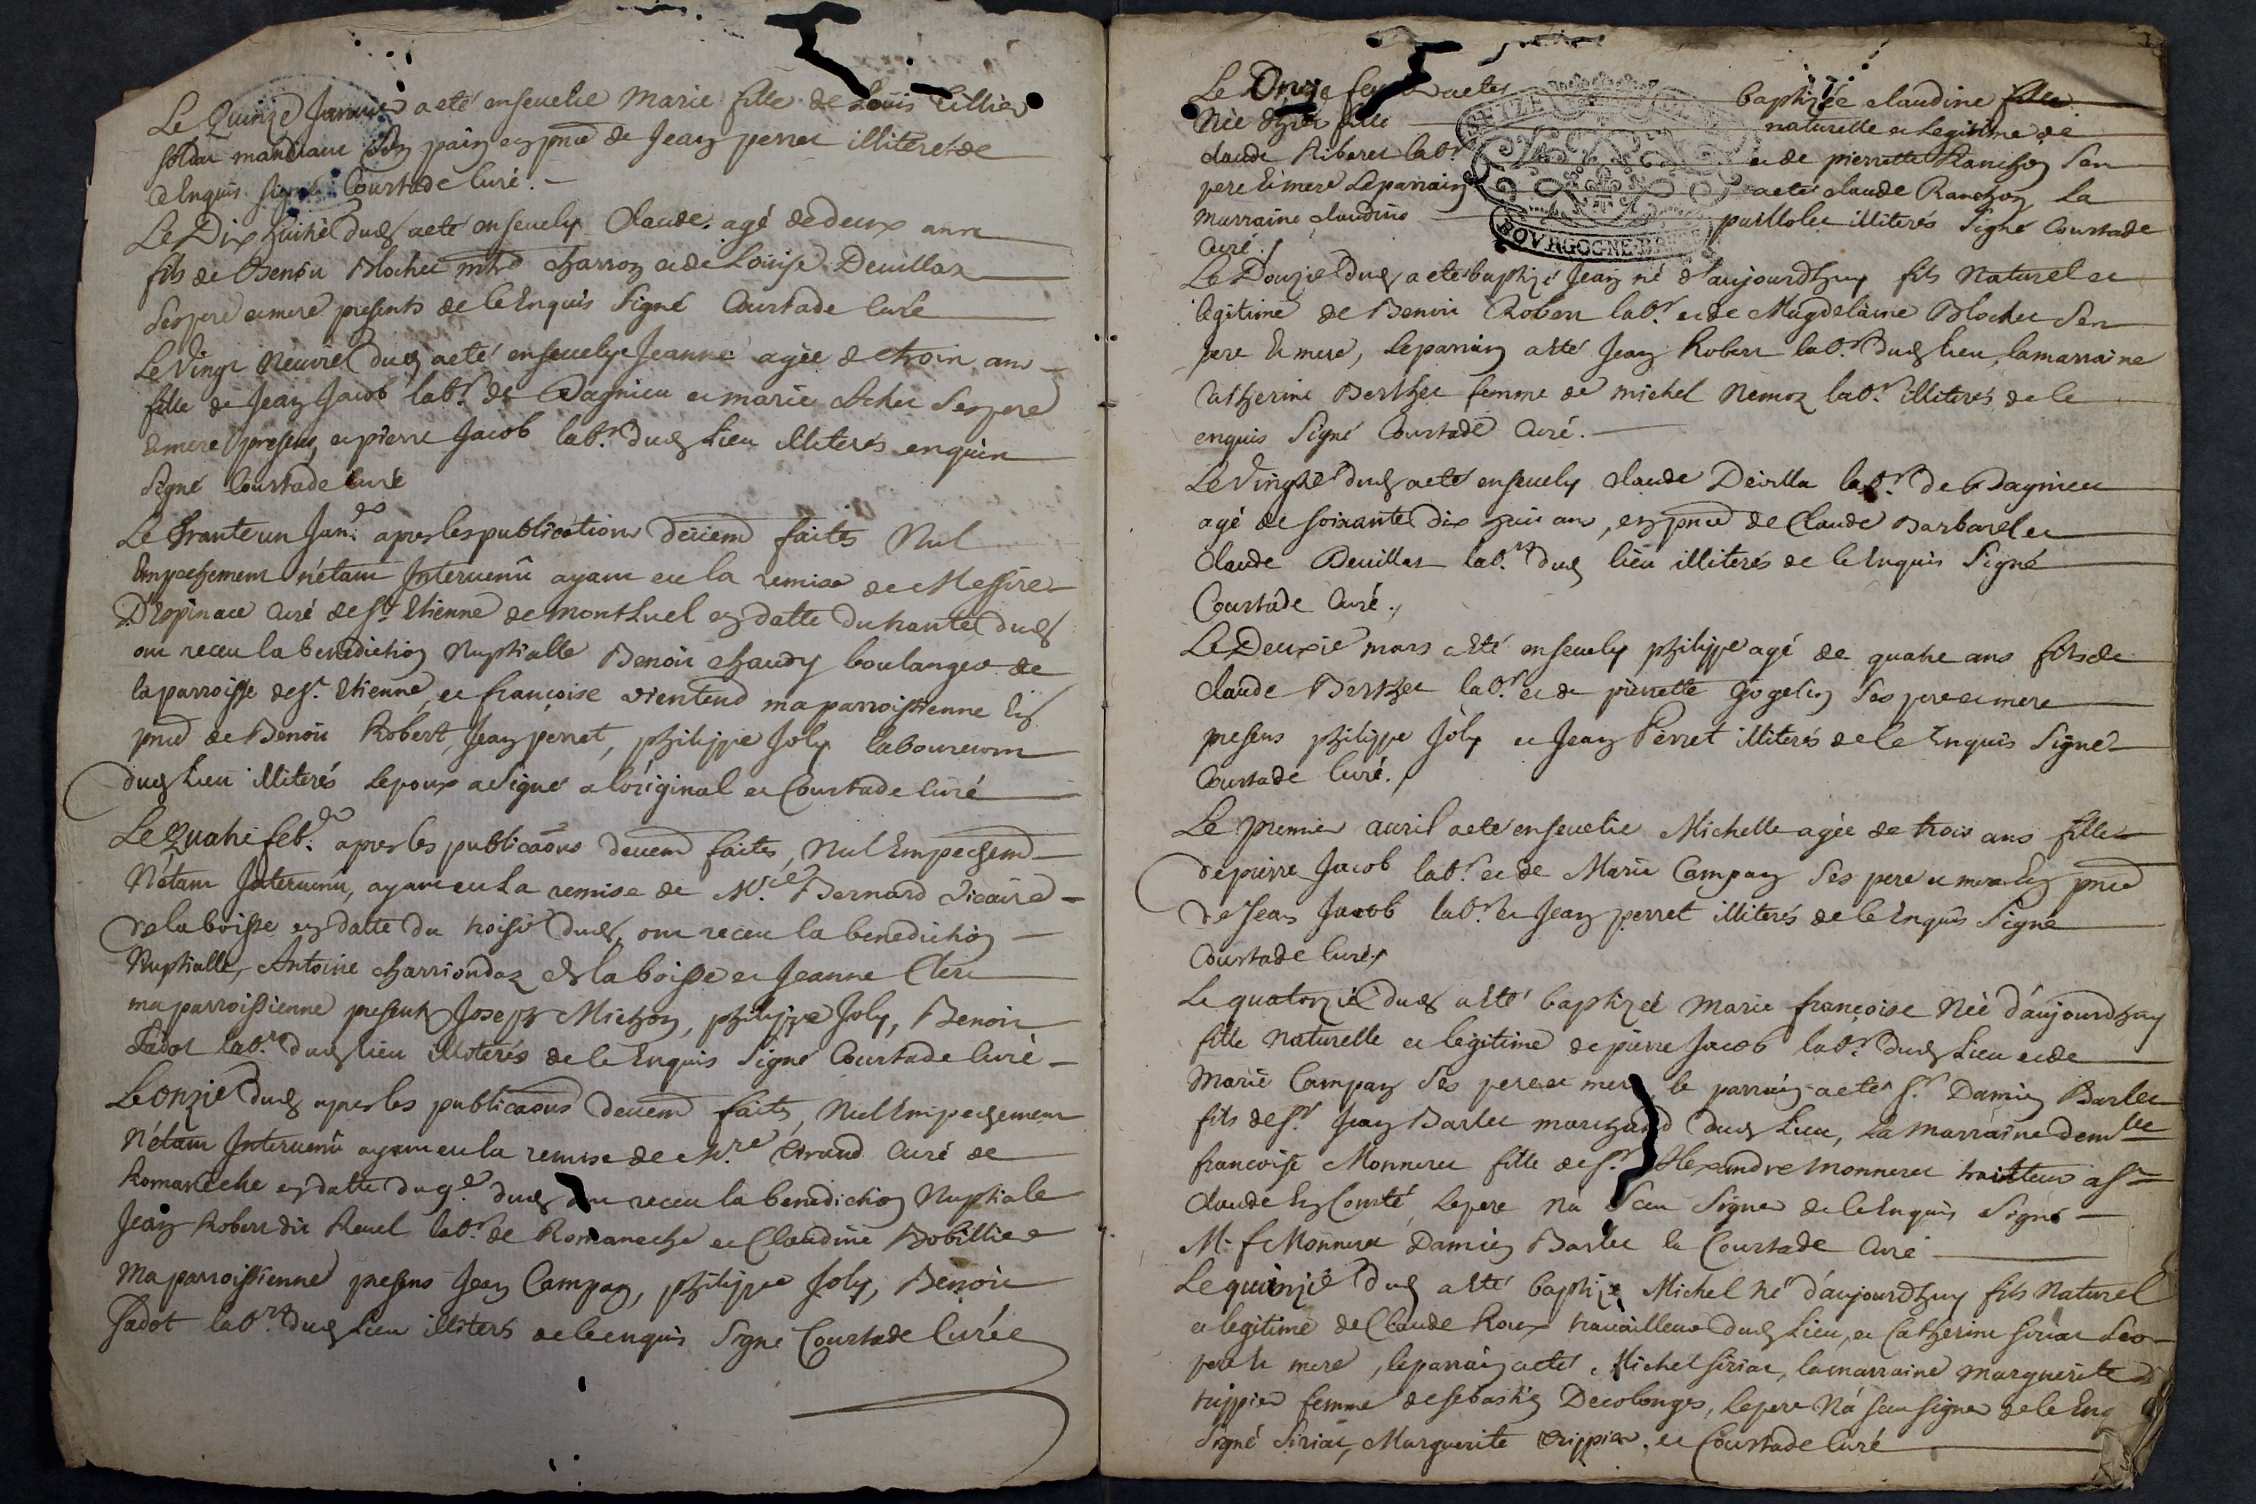 Le Quinze Janvier a eté enseuelie Marie fille de Louis Tillier
soldat mandiant son pain en pnce de Jean perret illiteré de
ce Enquis signé Courtade Curé.
Le Dix huitie dud. a eté enseuely Claude agé de deux ans
fils de Benoit Blochet mtre charron et de Louise Deuillas
Ses pere et mere presents de ce Enquis Signé Courtade Curé
Le Vingt Neuvie dud. a eté enseuelye Jeanne agée de trois ans
fille de Jean Jacob labr. de Dagnieu et marie Scher Ses pere
Et mere presens, et pierre Jacob labr. dud. Lieu illiterés enquis
Signé Courtade Curé
Le Trante un Janr. apres les publications deüemt faites Nul
Empechement n'étant Intervenû ayant eu la remise de Messire
D'Espinace Curé de St. Etienne de Montluel en datte du trante dud.
ont receu la benediction Nuptialle Benoit Chaudy boulanger de
la parroisse de St. Etienne, et françoise vientend ma parroissienne En
pnce de Benoit Robert, Jean perret, philippe Joly laboureurs
dud. Lieu illiterés Lepoux a signé a l'original et Courtade Curé
Le Quatre feb. apres les publicaons deuemt faites, Nul Empechemt
N'étant Intervenû, ayant eu La remise de Mre. Bernard Vicaire
de la boisse en datte du troisie dud. ont receu la benediction
Nuptialle, Antoine charriondaz de la boisse et Jeanne Clerc
ma parroissienne presents Joseph Michon, philippe Joly, Benoit
Jadot labr. dud. lieu illiterés de ce Enquis Signé Courtade Curé
Le onzie dud. apres les publicaons deuemt faites, Nul Empechement
N'étant Intervenû ayant eu la remise de Mre. Giraud Curé de
Romaneche en datte du 9e. dud. ont receu la benediction Nuptiale
Jean Robert dit Revel labr. de Romaneche et Claudine Bobillier
Ma parroissienne presens Jean Campan, philippe Joly, Benoit
Jadot labrs. dud. Lieu illiterés de ce enquis Signé Courtade Curé
Le Onze a eté baptizée Claudine fille
Née fille naturelle et Legitime de
claude Riberet labr. et de pierrette Ranchon Ses
pere Et mere Le parrain a eté claude Ranchon La
marraine claudine paillolet illiterés Signé Courtade
Curé.
BOVRGOGNE
Le Douzie dud. a eté baptizé Jean né d'aujourdhuy fils Naturel et
legitime de Benoit Robert labr. et de Magdelaine Blochet Ses
pere Et mere, Le parrain a été Jean Robert labr. dud. Lieu, la marraine
Catherine Berthet femme de michel Nemoz labr. illiterés de ce
enquis Signé Courtade Curé.
Le Vingtie dud. a eté enseuely claude Devilla labr. de Dagnieu
agé de soixante dix huit ans, en pnce de Claude Barbarel et
Claude Deuillas labrs. dud. lieu illiterés de ce Enquis Signé
Courtade Curé.
Le Deuxie mars a Eté enseuely philippe agé de quatre ans fils de
claude Berthet labr. et de pierrette Gogelin Ses pere et mere
presens philippe Joly et Jean Perret illiterés de ce Enquis Signé
Courtade Curé.
Le premier auril a eté enseuelie Michelle agée de trois ans fille
de pierre Jacob labr. et de Marie Campan Ses pere et mere En pnce
de Jean Jacob labr. et Jean perret illiterés de ce Enquis Signé
Courtade Curé
Le quatorzie dud. a été baptizée Marie françoise Née d'aujourdhuy
fille Naturelle et legitime de pierre Jacob labr. dud. Lieu et de
Marie Campan Ses pere et mere, le parrain a eté Sr. Damien Barlet
fils de Sr. Jean Barlet marchand dud. Lieu, La Marraine demlle
francoise Monneret fille de Sr. Alexandre Monneret traitteur a St
Claude En Comté, Le pere Na Sceu Signer de ce Enquis Signé
M. f Monneret Damien Barlet et Courtade Curé
Le quinzie dud. a été baptizé Michel né d'aujourdhuy fils Naturel
et legitime de Claude Roux travailleur dud. Lieu, et Catherine Siriat Ses
pere Et mere, le parrain a eté Michel Siriat, la marraine Marguerite
trippier femme de sebastien Decolonges, Le pere Na sceu signer de ce Enq
Signé Siriat, Marguerite trippier, et Courtade Curé